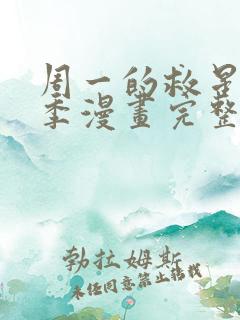 周一的救星
季漫畫完整
勃拉姆斯
未经同意禁止转载